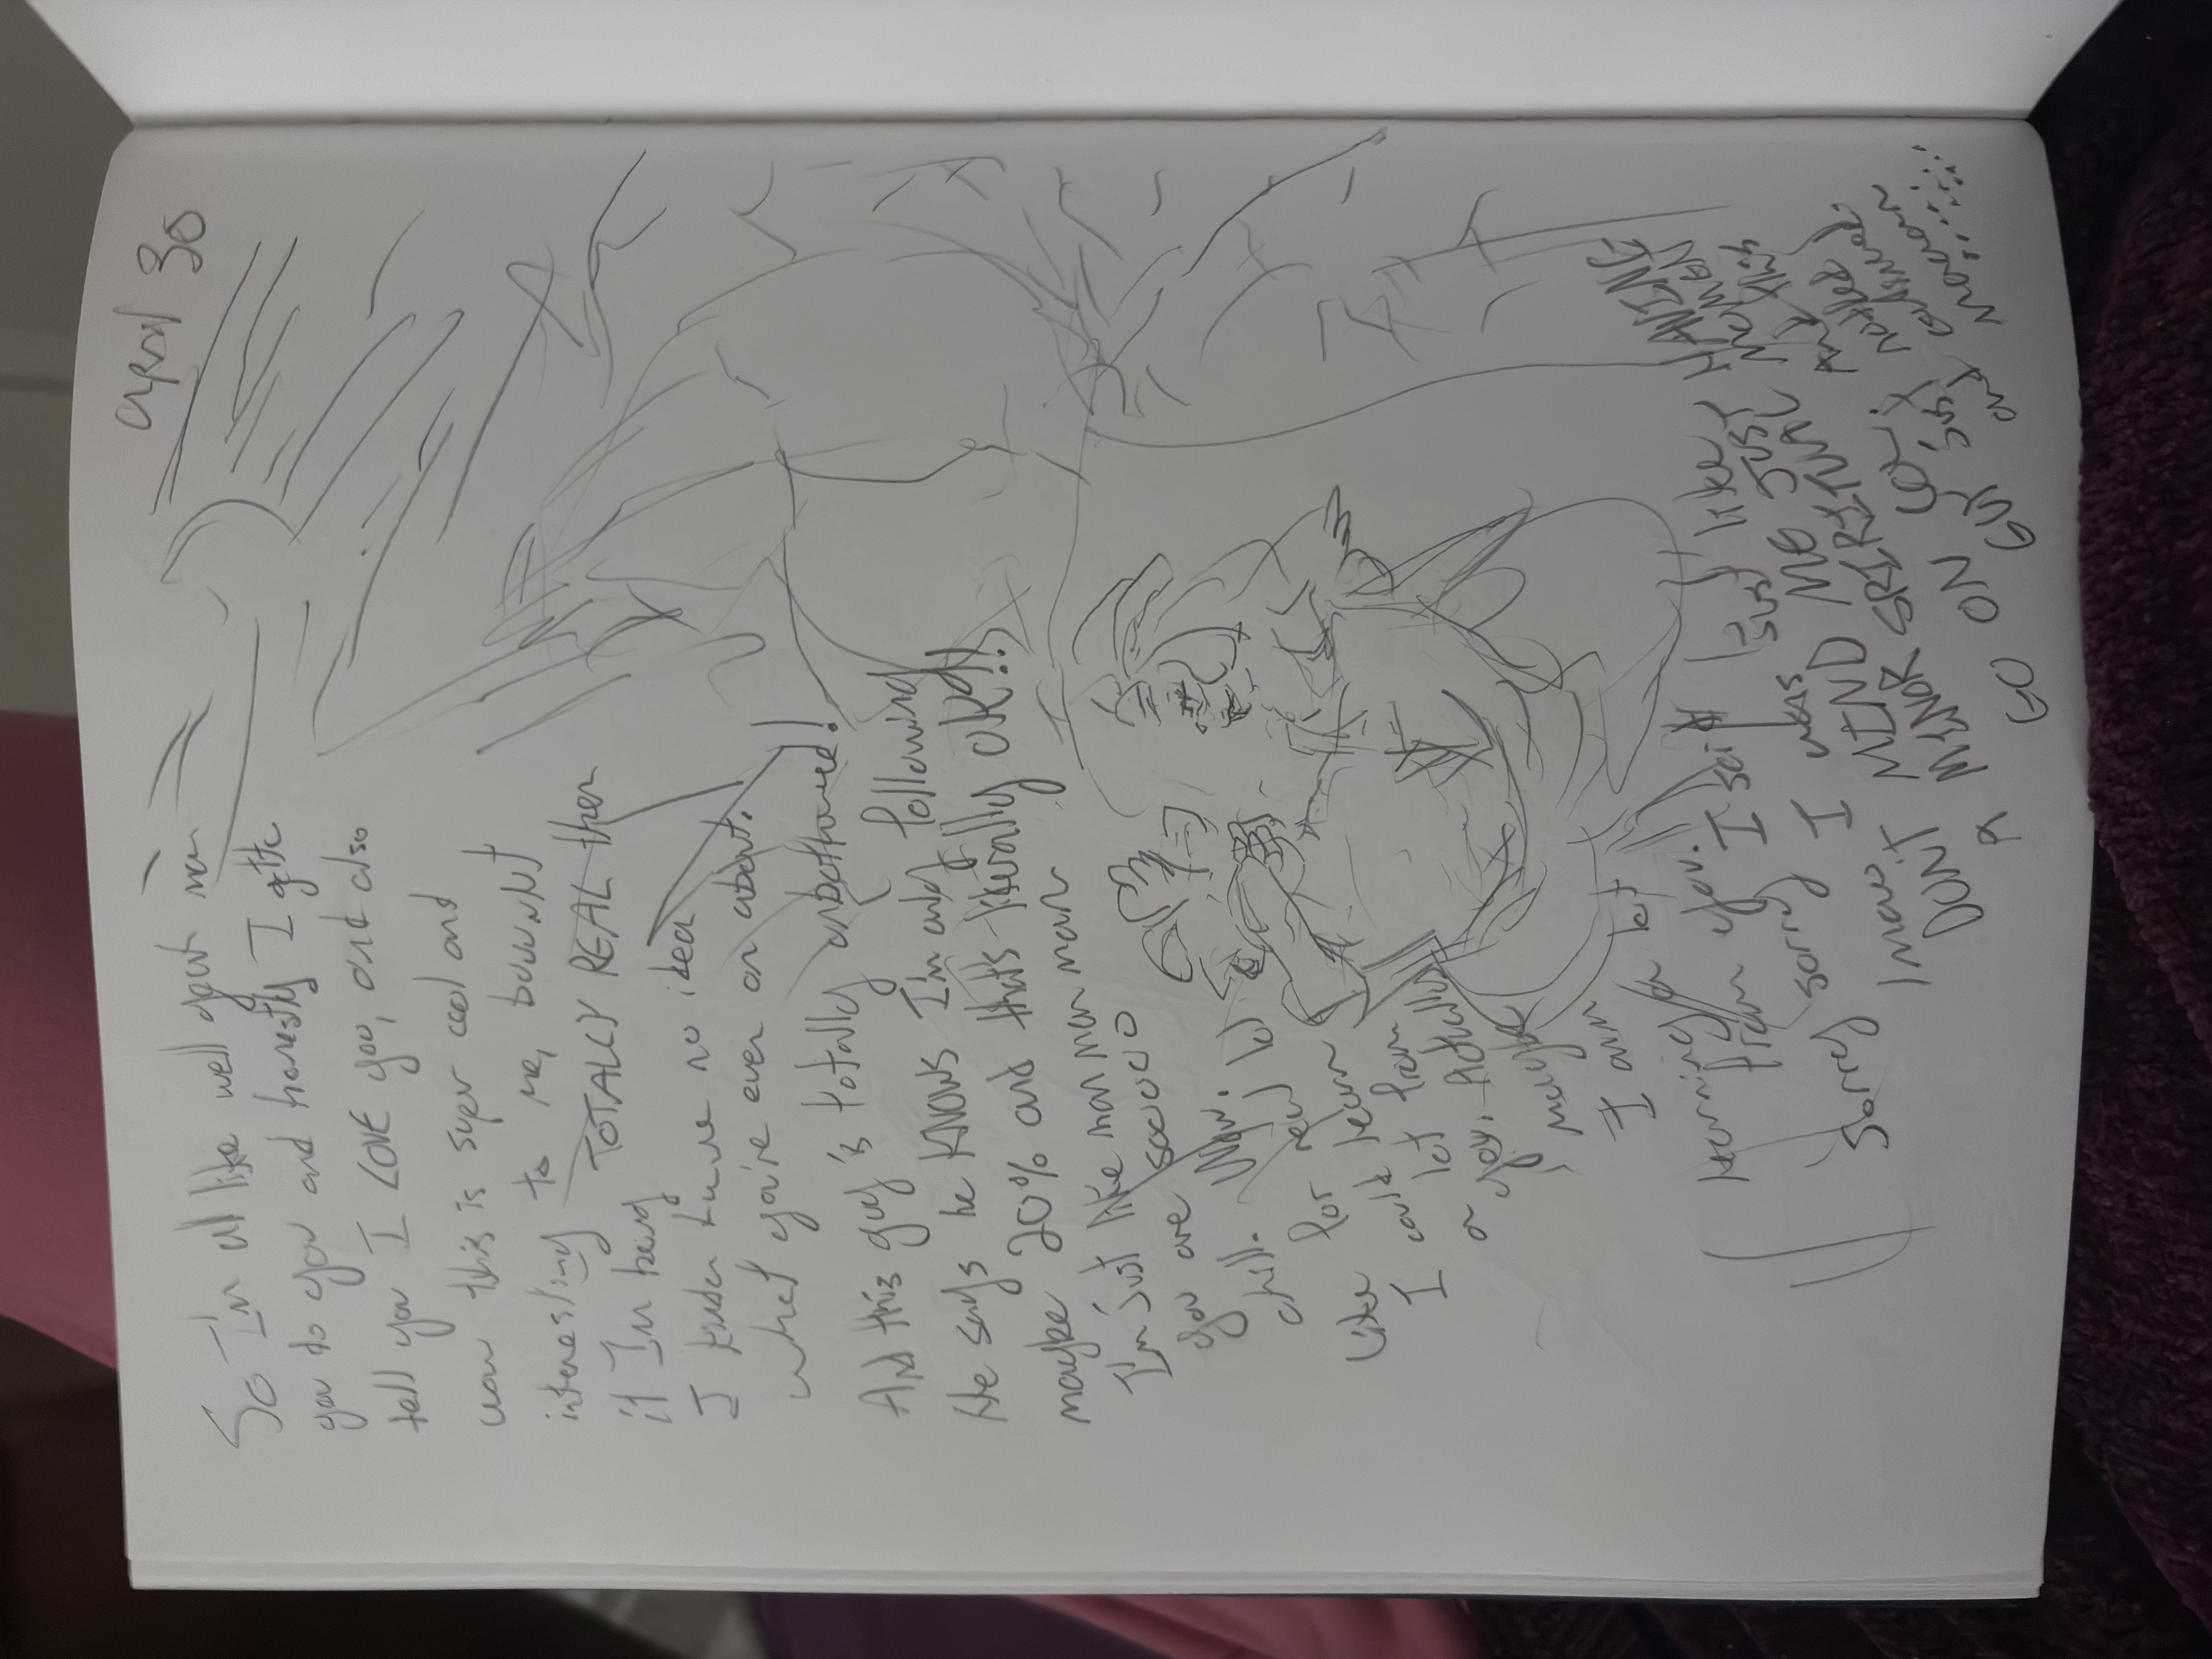 april 30
So I'm all like well yeah man
you do you and honestly I gotta
tell you I LOVE you, and also
wow this is super cool and
interesting to me, bowwnt
if I'm being TOTALLY REAL then
I kinda have no idea
what you're even on about.
And this guy is totally unbothered!
He says he KNOWS I'm only following
maybe 20% and that's literally OK!!
I'm just like man man man man
you are soooooo
chill. Wow.
Like for real, lol
I could learn
a lot from
you. Actually
maybe
I am
learning a lot
from you. I said
sorry I was just like
Sorry I was JUST HAVING
DONT MIND ME
A MINOR SPIRITUAL MOMENT
GO ON